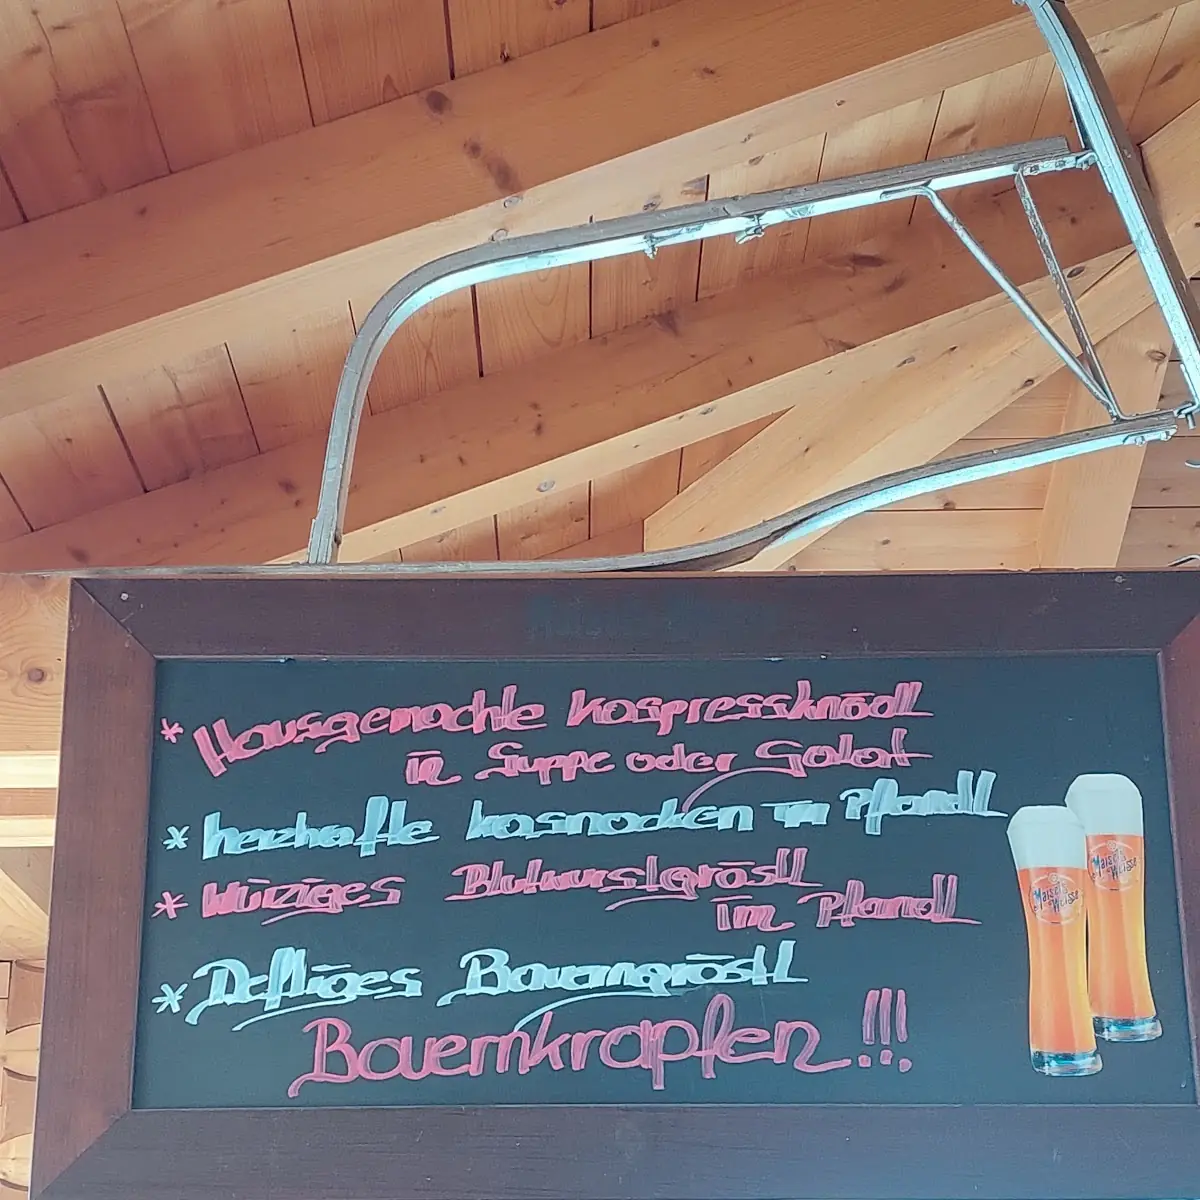 * Hausgemachte Kaspressknödl
in Suppe oder Salat
* herzhafte Kasnocken im Pfandl
* Würziges Blutwurstgröstl
im Pfandl
* Deftiges Bauerngröstl
Bauernkrapfen !!!
Maisel's
Weisse
Maisel's
Weisse